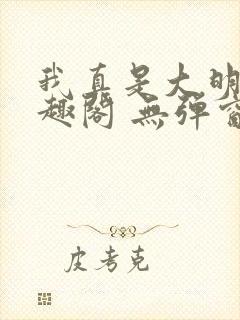 我真是大明
趣阁 無弹窗
皮考克